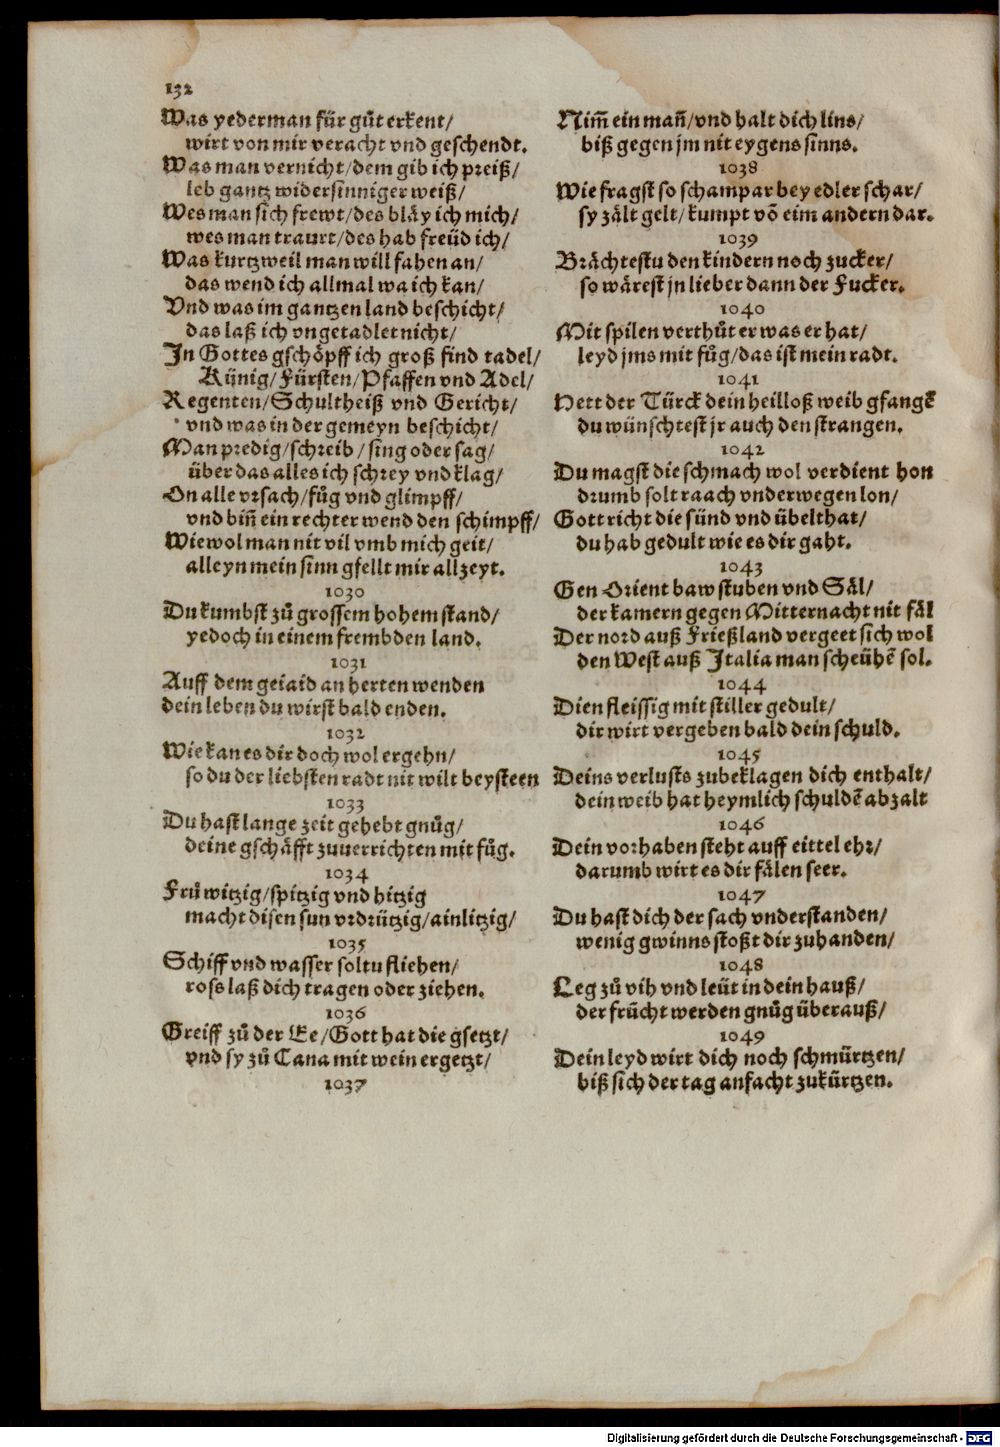 132
Was yederman für gůt erkent/
wirt von mir veracht vnd geschendt.
Was man vernicht/dem gib ich preiß/
leb gantz widersinniger weiß/
Wes man sich frewt/des bläy ich mich/
wes man traurt/des hab freüd ich/
Was kurtzweil man will fahen an/
das wend ich allmal wa ich kan/
Vnd was im gantzen land beschicht/
das laß ich vngetadlet nicht/
In Gottes gschöpff ich groß find tadel/
Künig/Fürsten/Pfaffen vnd Adel/
Regenten/Schultheiß vnd Gericht/
vnd was in der gemeyn beschicht/
Man predig/schreib/sing oder sag/
über das alles ich schrey vnd klag/
On alle vrsach/fůg vnd glimpff/
vnd biñ ein rechter wend den schimpff/
Wiewol man nit vil vmb mich geit/
alleyn mein sinn gfellt mir allzeyt.
1030
Du kumbst zů grossem hohem stand/
yedoch in einem frembden land.
1031
Auff dem geiaid an herten wenden
dein leben du wirst bald enden.
1032
Wie kan es dir doch wol ergehn/
so du der liebsten radt nit wilt beysteen
1033
Du hast lange zeit gehebt gnůg/
deine gschäfft zuuerrichten mit fůg.
1034
Früwitzig/spitzig vnd hitzig
macht disen sun vrdrützig/ainlitzig/
1035
Schiff vnd wasser soltu fliehen/
ross laß dich tragen oder ziehen.
1036
Greiff zů der Ee/Gott hat die gsetzt/
vnd sy zů Cana mit wein ergetzt/
1037
Nim̃ ein mañ/vnd halt dich lins/
biß gegen jm nit eygens sinns.
1038
Wie fragst so schampar bey edler schar/
sy zält gelt/kumpt võ eim andern dar.
1039
Brächtestu den kindern noch zucker/
so wärest jn lieber dann der Fucker.
1040
Mit spilen verthůt er was er hat/
leyd jms mit fůg/das ist mein radt.
1041
Hett der Türck dein heilloß weib gfangẽ
du wünschtest jr auch den strangen.
1042
Du magst die schmach wol verdient hon
drumb solt raach vnderwegen lon/
Gott richt die sünd vnd übelthat/
du hab gedult wie es dir gaht.
1043
Gen Orient baw stuben vnd Säl/
der kamern gegen Mitternacht nit fäl
Der nord auß Frießland vergeet sich wol
den West auß Italia man scheühẽ sol.
1044
Dien fleissig mit stiller gedult/
dir wirt vergeben bald dein schuld.
1045
Deins verlusts zubeklagen dich enthalt/
dein weib hat heymlich schuldẽ abzalt
1046
Dein vorhaben steht auff eittel ehr/
darumb wirt es dir fälen seer.
1047
Du hast dich der sach vnderstanden/
wenig gwinns stoßt dir zuhanden/
1048
Leg zů vih vnd leüt in dein hauß/
der frücht werden gnůg überauß/
1049
Dein leyd wirt dich noch schmürtzen/
biß sich der tag anfacht zukürtzen.
Digitalisierung gefördert durch die Deutsche Forschungsgemeinschaft - DFG